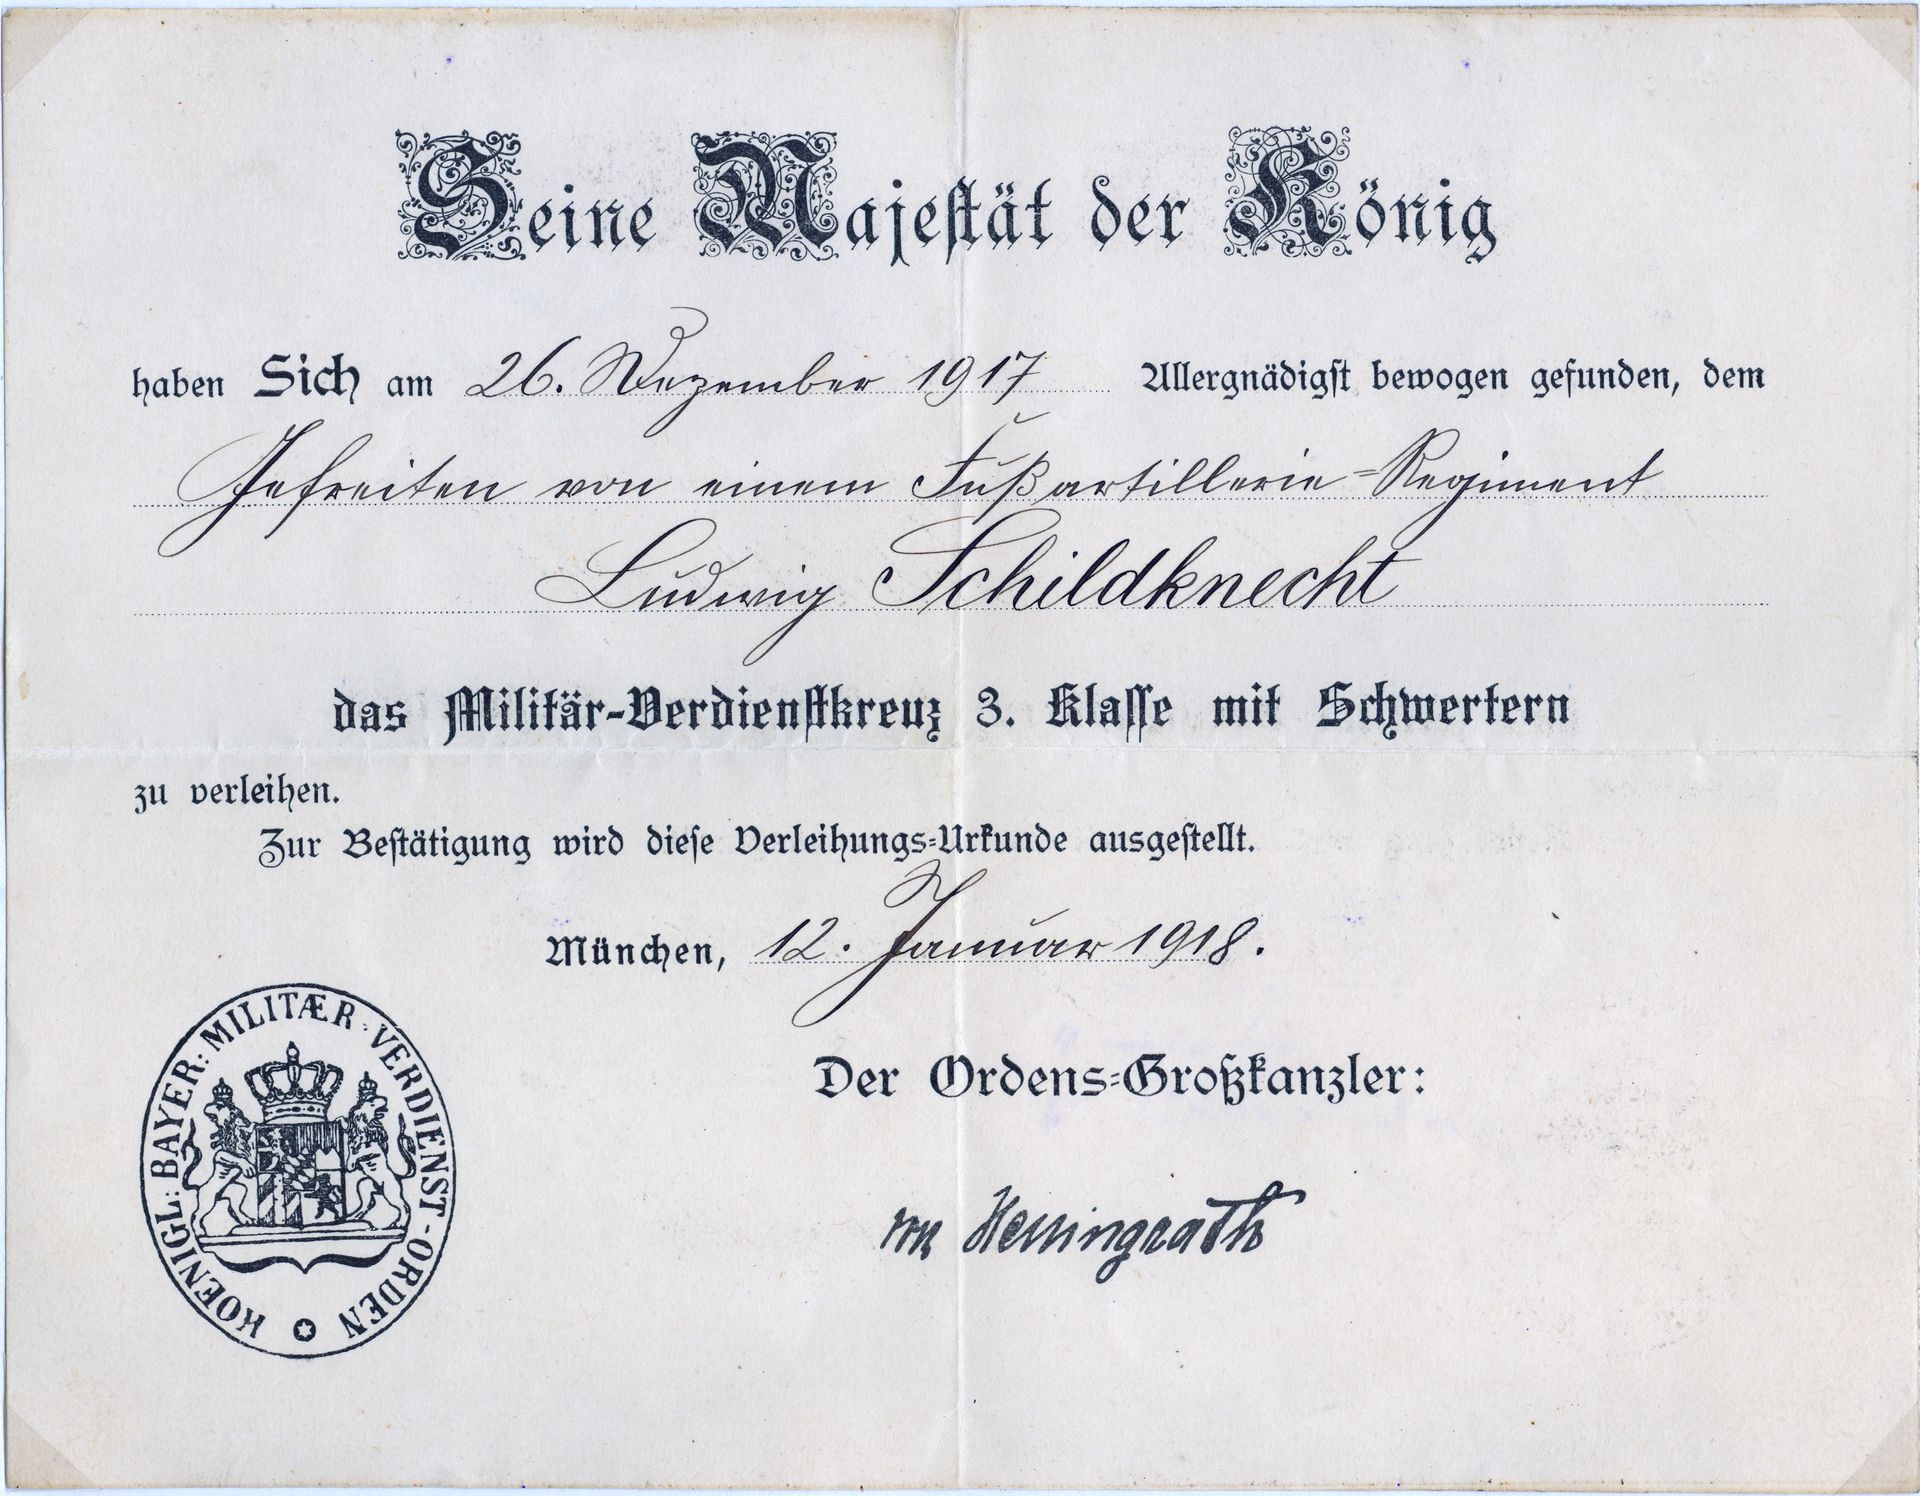 Seine Majestät der König
haben Sich am 26. Dezember 1917 Allergnädigst bewogen gefunden, dem
Gefreiten von einem Fußartillerie-Regiment
Ludwig Schildknecht
das Militär-Verdienstkreuz 3. Klasse mit Schwertern
zu verleihen.
Zur Bestätigung wird diese Verleihungs-Urkunde ausgestellt.
München, 12. Januar 1918.
KOENIGL: BAYER: MILITÆR-VERDIENST-ORDEN
Der Ordens-Großkanzler:
von